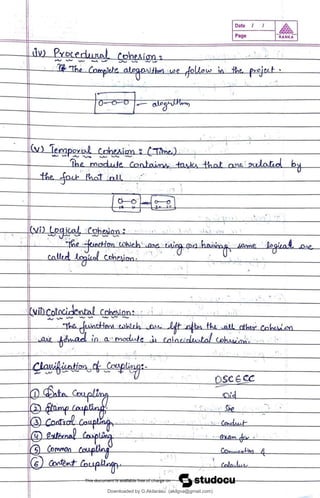 Date / /
Page
RANKA
iv) Procedural Cohesion :
The Complete alogorithm we follow in the project.
O-O-O - alogrithm
(v) Temporal Cohesion : (Time)
The module Contains tasks that are related by
the fact that all
(vi) Logical Cohesion :
The function which are using or having same logical are
called logical Cohesion.
(vii) Coincidental Cohesion :
The functions which are left after the all other Cohesion
are formed in a module is coincidental Cohesion.
Classification of Coupling:-
DSCECC
① Data Coupling Did
② Stamp Coupling She
③ Control Coupling conduct
④ External Coupling exam for
⑤ Common Coupling &
⑥ Content Coupling.
This document is available free of charge on studocu
Downloaded by G.Akilarasu (akilgna@gmail.com)